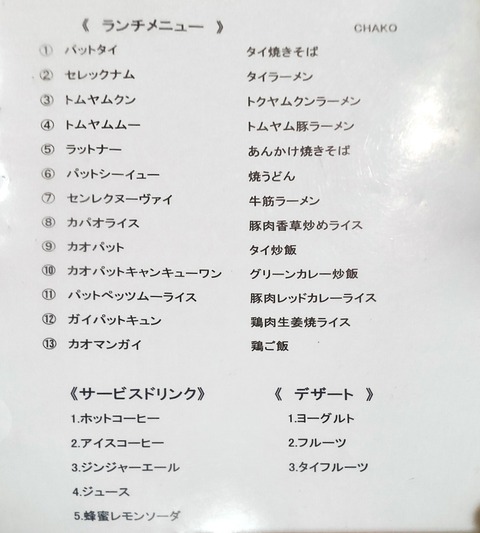 《 ランチメニュー 》 CHAKO
① パットタイ タイ焼きそば
② セレックナム タイラーメン
③ トムヤムクン トクヤムクンラーメン
④ トムヤムムー トムヤム豚ラーメン
⑤ ラットナー あんかけ焼きそば
⑥ パットシーイュー 焼うどん
⑦ センレクヌーヴァイ 牛筋ラーメン
⑧ カパオライス 豚肉香草炒めライス
⑨ カオパット タイ炒飯
⑩ カオパットキャンキューワン グリーンカレー炒飯
⑪ パットペッツムーライス 豚肉レッドカレーライス
⑫ ガイパットキュン 鶏肉生姜焼ライス
⑬ カオマンガイ 鶏ご飯
《サービスドリンク》
1.ホットコーヒー
2.アイスコーヒー
3.ジンジャーエール
4.ジュース
5.蜂蜜レモンソーダ
《 デザート 》
1.ヨーグルト
2.フルーツ
3.タイフルーツ